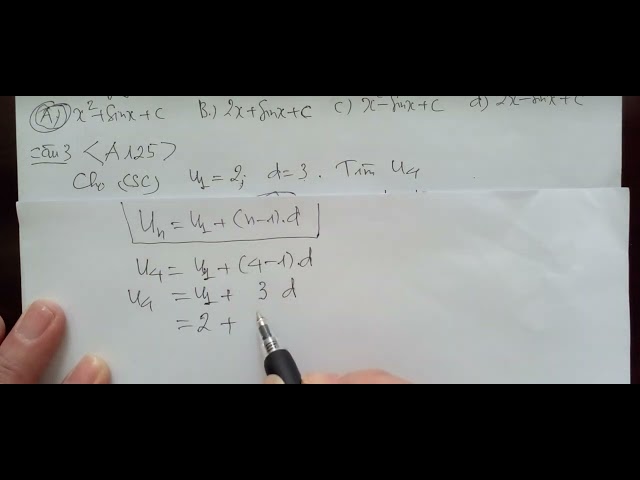 A) x²+sinx+C B.) 2x+sinx+C C) x²-sinx+C d) 2x-sinx+C
câu 3 <A125>
Cho (CSC) U₁=2; d=3. Tìm U₄
Uₙ = U₁ + (n-1).d
U₄ = U₁ + (4-1).d
U₄ = U₁ + 3 d
= 2 +